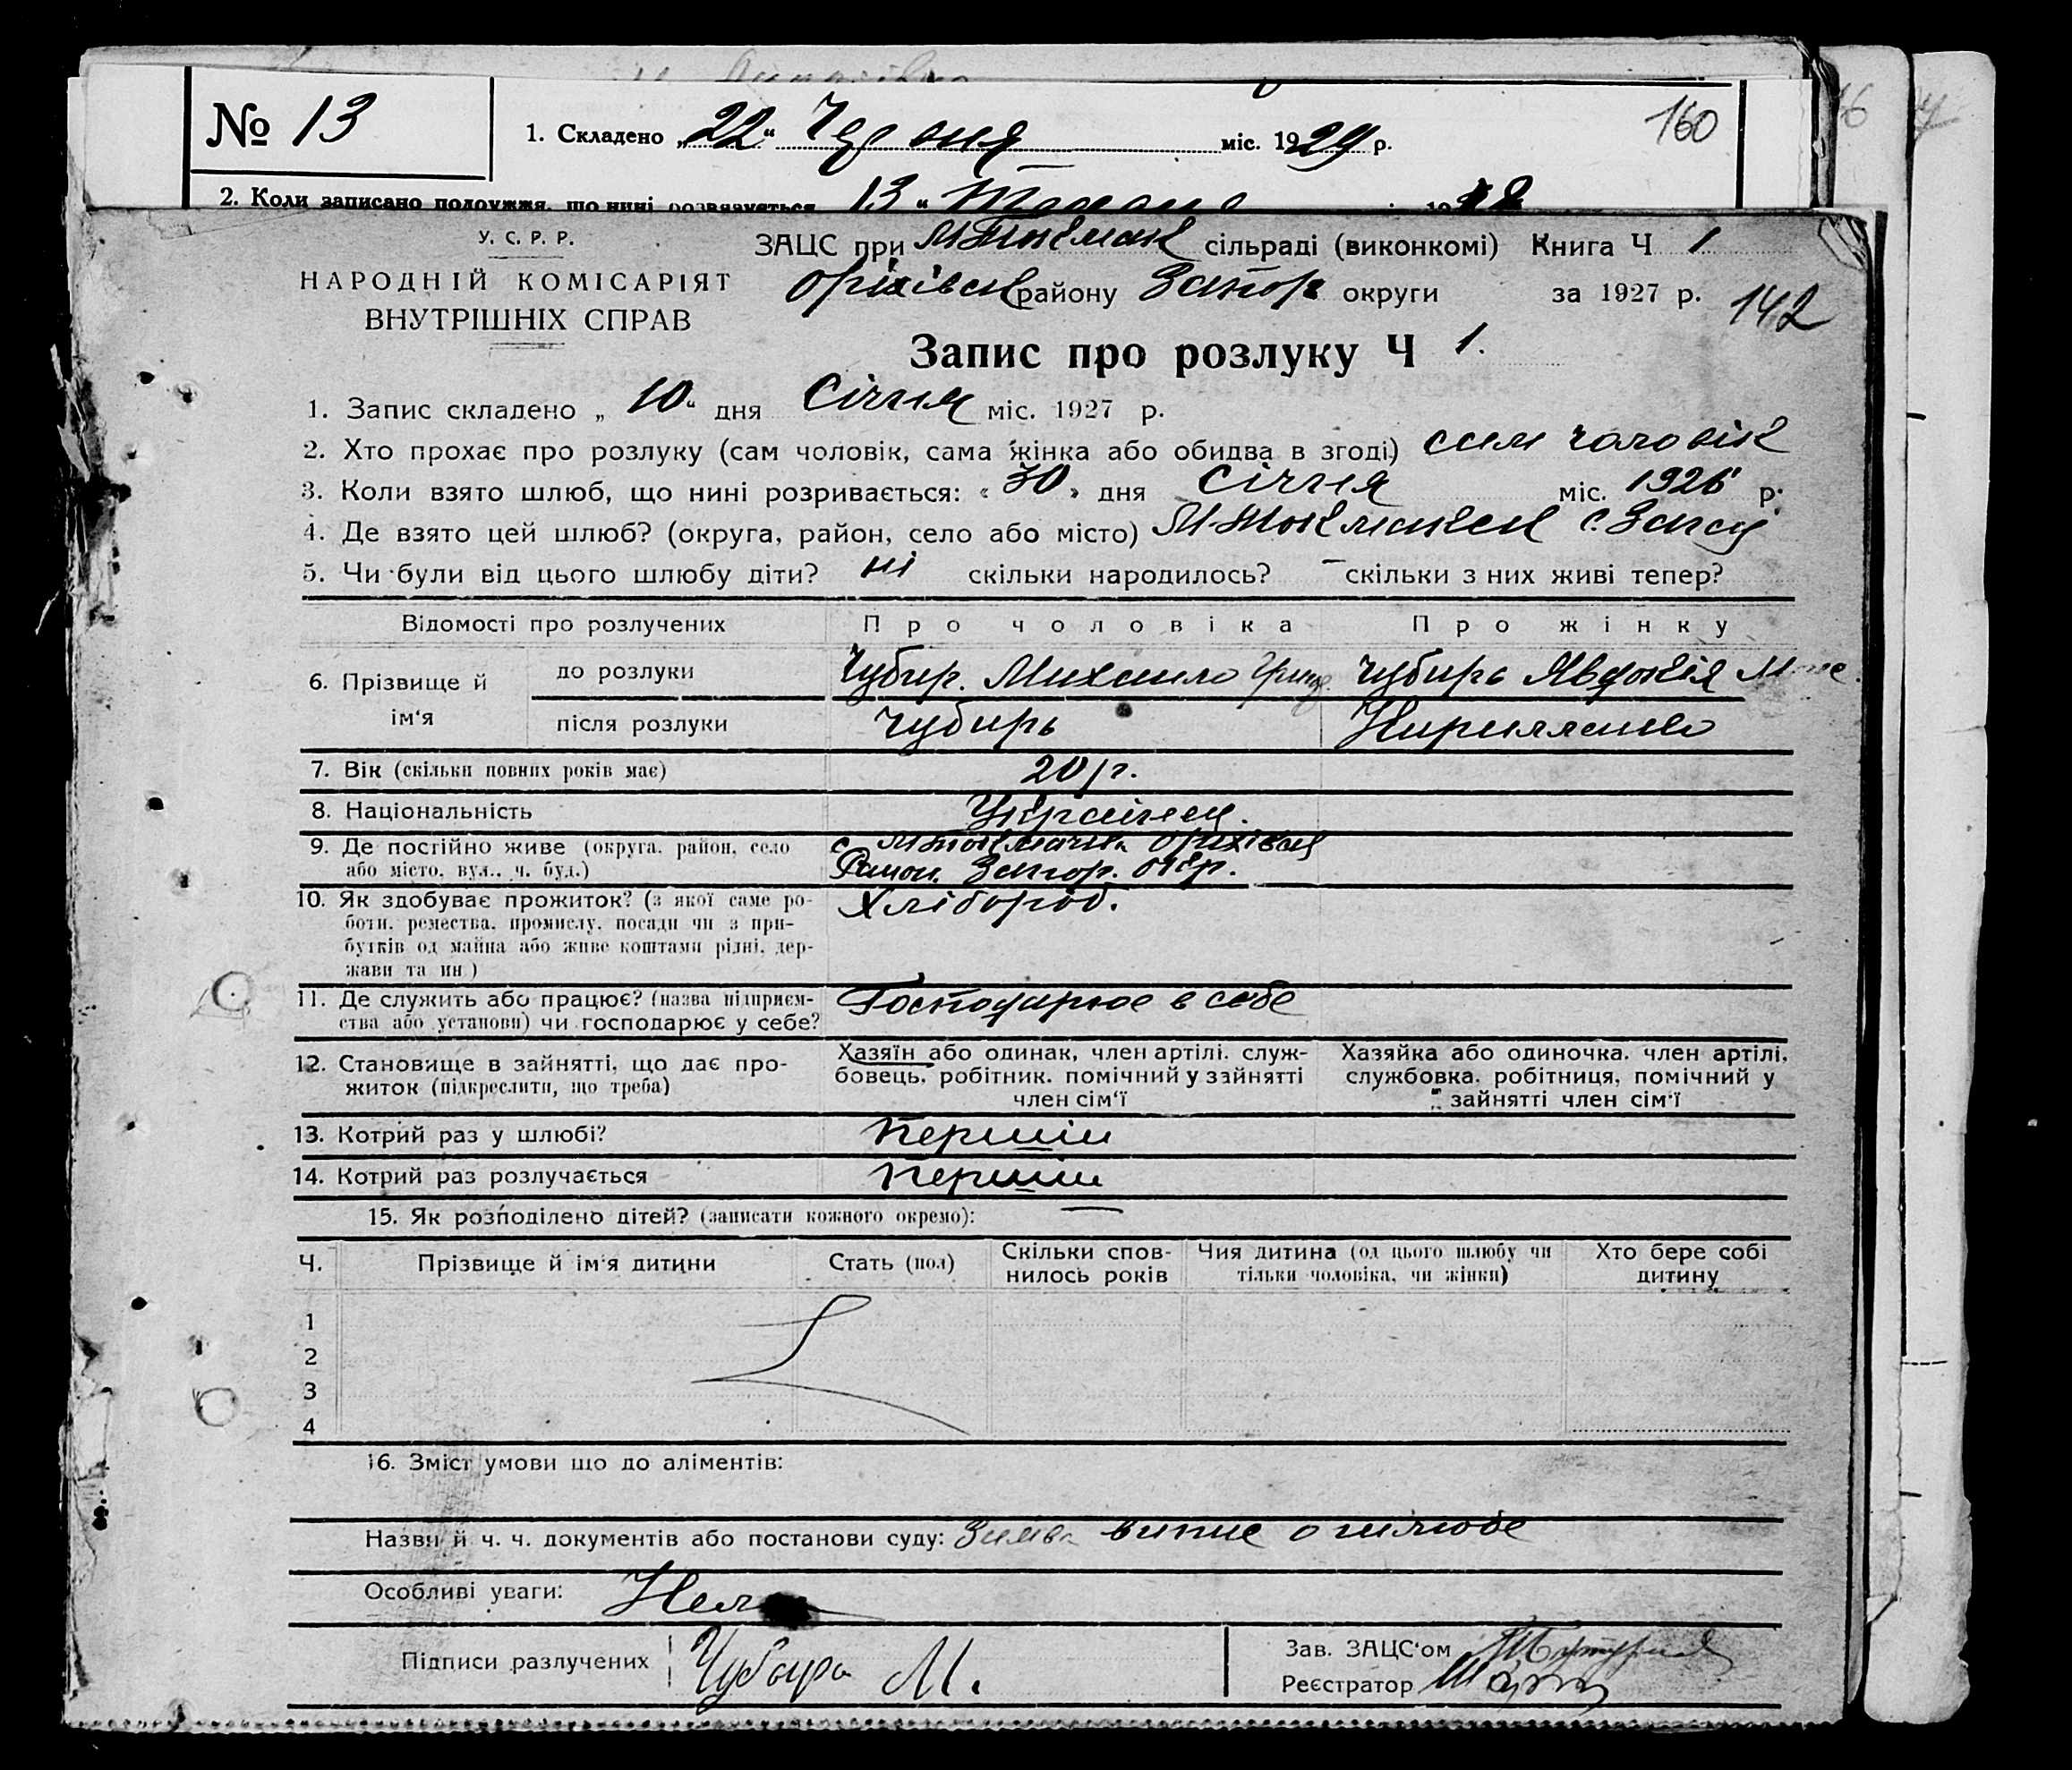 № 13
1. Складено „22“ Червня міс. 1929 р.
160
2. Коли записано подружжя, що нині розвязується 13 "
У. С. Р. Р.
НАРОДНІЙ КОМІСАРІЯТ
ВНУТРІШНІХ СПРАВ
ЗАЦС при М Токмак сільраді (виконкомі) Книга Ч 1
Оріхівск району Запор округи за 1927 р.
142
Запис про розлуку Ч 1.
1. Запис складено „ 10 “ дня Січня міс. 1927 р.
2. Хто прохає про розлуку (сам чоловік, сама жінка або обидва в згоді) сам чоловік
3. Коли взято шлюб, що нині розривається: « 30 » дня Січня міс. 1926 р.
4. Де взято цей шлюб? (округа, район, село або місто) М-Токмакск
5. Чи були від цього шлюбу діти? ні скільки народилось? – скільки з них живі тепер?
Відомості про розлучених Про чоловіка Про жінку
6. Прізвище й ім'я
до розлуки Чубир. Михаило Чубирь Явдокія
після розлуки Чубирь Кирилленко
7. Вік (скільки повних років має) 20 р.
8. Національність Українец.
9. Де постійно живе (округа, район, село або місто, вул., ч. буд.)
с М Токмачка Оріхівск
Район. Запор. окр.
10. Як здобуває прожиток? (з якої саме роботи, ремества, промислу, посади чи з прибутків од майна або живе коштами рідні, держави та ин)
Хлібороб.
11. Де служить або працює? (назва підприємства або установи) чи господарює у себе?
Господарює в себе
12. Становище в зайнятті, що дає прожиток (підкреслити, що треба)
Хазяїн або одинак, член артілі, службовець, робітник, помічний у зайнятті член сім'ї
Хазяйка або одиночка, член артілі, службовка, робітниця, помічний у зайнятті член сім'ї
13. Котрий раз у шлюбі? Перший
14. Котрий раз розлучається Перший
15. Як розподілено дітей? (записати кожного окремо): —
Ч. Прізвище й ім'я дитини Стать (пол) Скільки сповнилось років Чия дитина (од цього шлюбу чи тільки чоловіка, чи жінки) Хто бере собі дитину
1
2
3
4
16. Зміст умови що до аліментів:
Назви й ч. ч. документів або постанови суду: випис о шлюбе
Особливі уваги:
Підписи разлучених Чубирь М.
Зав. ЗАЦС'ом
Реєстратор